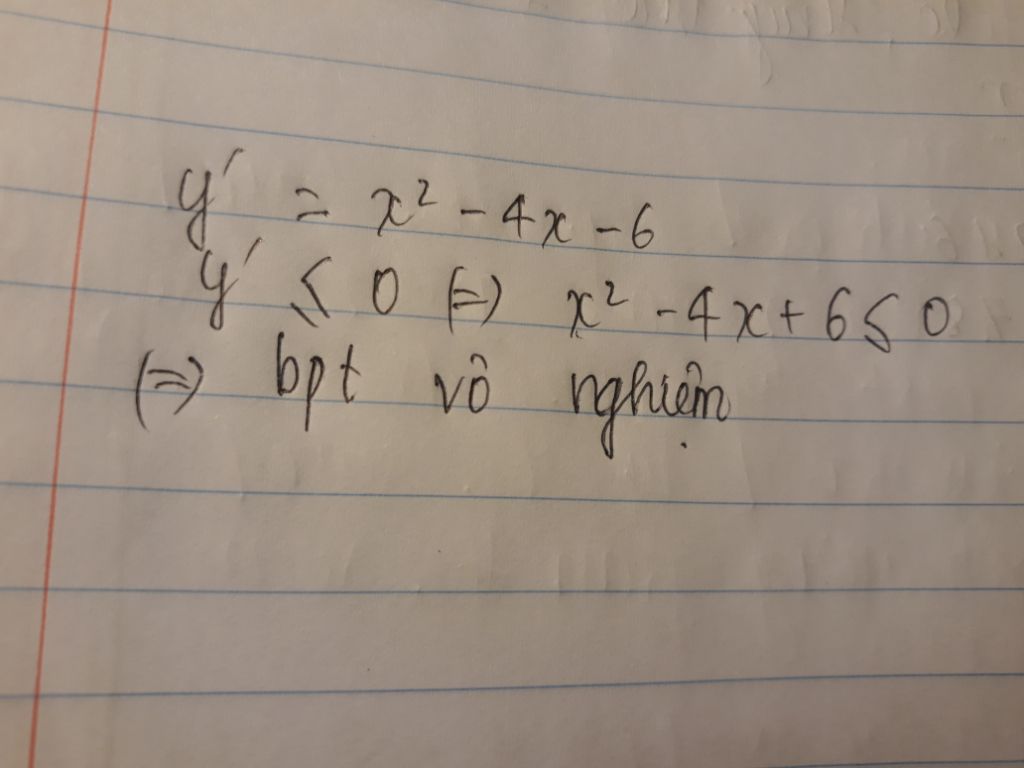 y' = x² - 4x - 6
y' ≤ 0 (=) x² - 4x + 6 ≤ 0
(=) bpt vô nghiệm